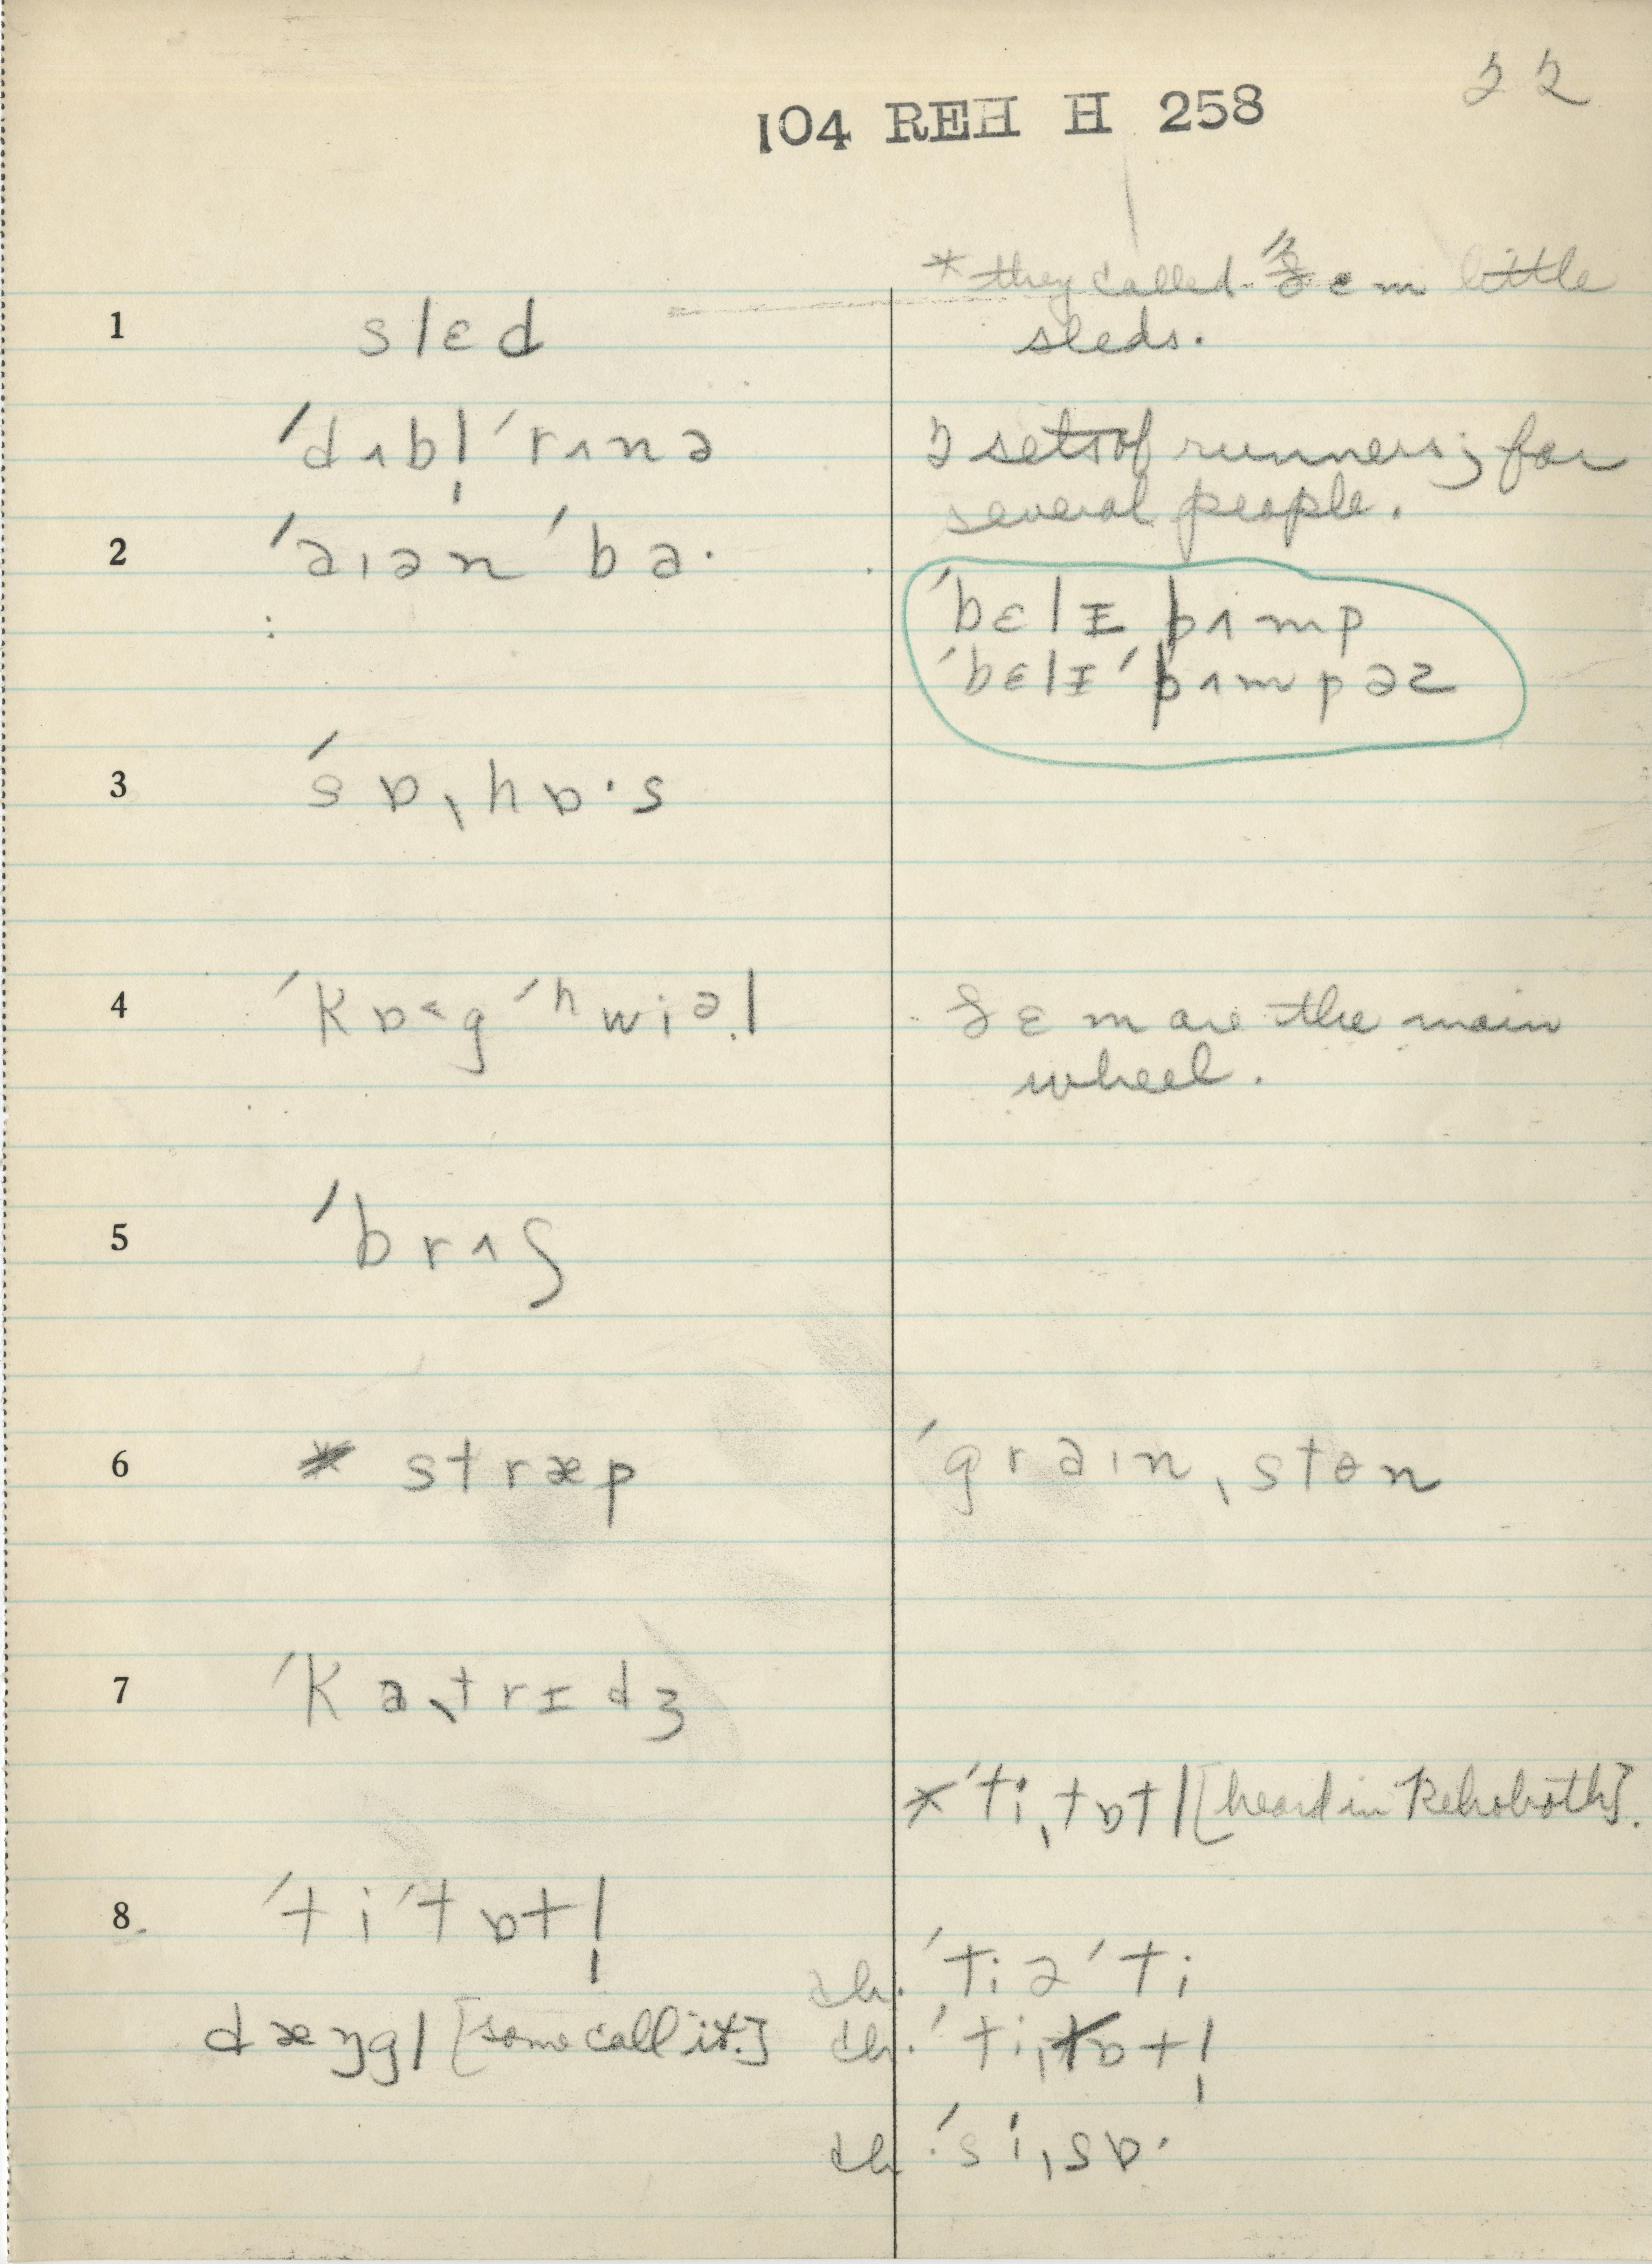 22
104 REH H 258
* they called ðem little
sleds.
1 slɛd
ˈdʌbl̩ ˈrʌnə
2 sets of runners; for
several people.
2 ˈaɪən ˈba·
ˈbɛlɪ bʌmp
ˈbɛlɪ ˈbʌmpəz
3 ˈsɒˌhɒ·s
4 ˈkɒ˂g ˈhwiəl
ðɛm are the main
wheel.
5 ˈbrʌʃ
6 * stræp
ˈgraɪnˌstɵn
7 ˈkaˌtrɪdʒ
* ˈtiˌtɒtl [heard in Rehoboth].
8 ˈtiˈtɒtl̩
ch. ˈtiəˈti
dæŋgl [some call it.]
ch. ˈtiˌtɒtl̩
ch. ˈsiˌsɒ·